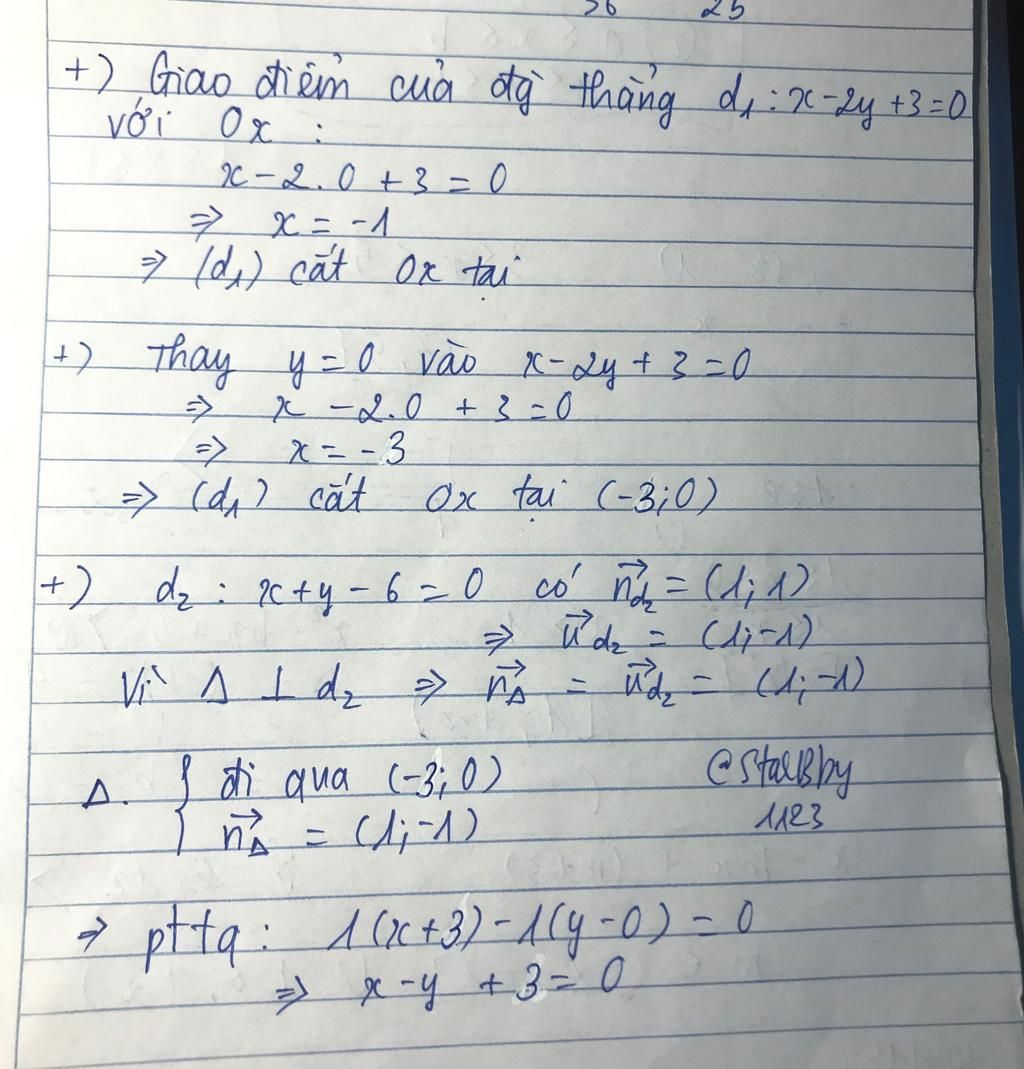 36 25
+) Giao điểm của đg thẳng d₁ : x - 2y + 3 = 0
với Ox :
x - 2.0 + 3 = 0
=> x = -1
=> (d₁) cắt Ox tại
+) Thay y = 0 vào x - 2y + 3 = 0
=> x - 2.0 + 3 = 0
=> x = -3
=> (d₁) cắt Ox tại (-3; 0)
+) d₂ : x + y - 6 = 0 có n⃗d₂ = (1; 1)
=> u⃗d₂ = (1; -1)
Vì Δ ⊥ d₂ => n⃗Δ = u⃗d₂ = (1; -1)
Δ. { đi qua (-3; 0)
n⃗Δ = (1; -1)
@StarBby
1123
=> pttq : 1(x+3) - 1(y-0) = 0
=> x - y + 3 = 0